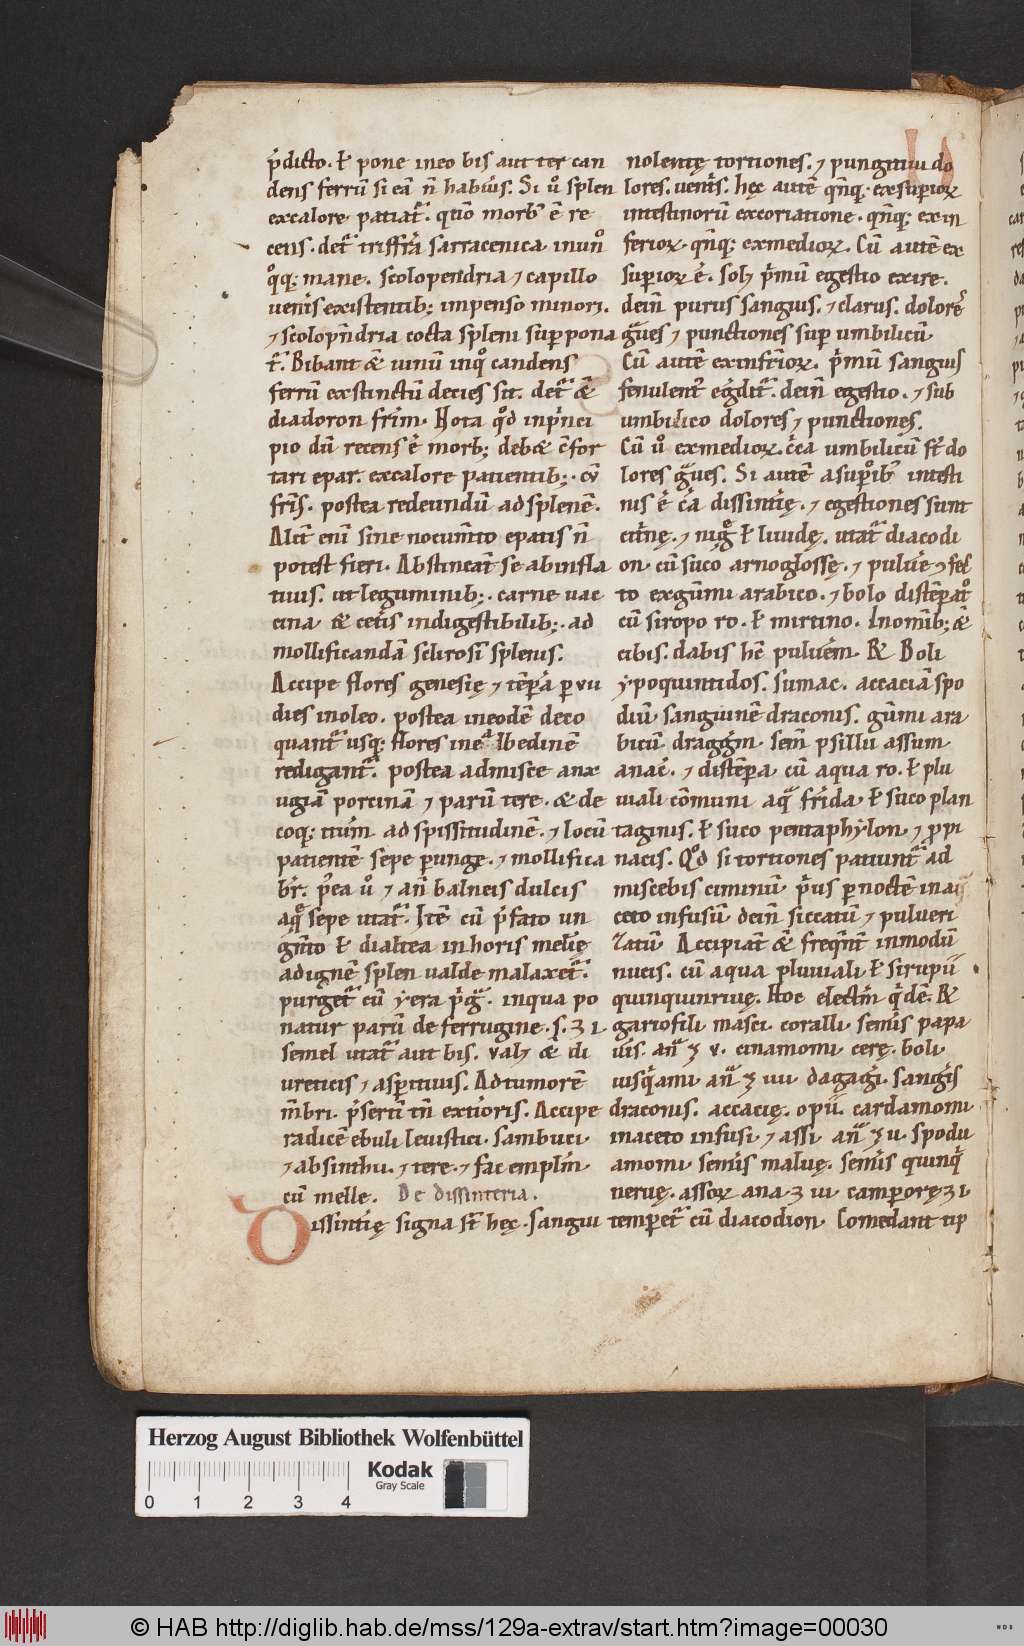 p̄dicto. ł pone in eo bis aut ter can
dens ferrū si eā n̄ habuīs. Si ů splen
ex calore patiat᷑. qm̄o morb᷒ ē re
cens. det᷑ triffr̄a sarracenica in uino
q̊q; mane. scolopendria ⁊ capillo
uen̄is existentib;
⁊ scolop̄ndria cocta spleni sup pona
t᷑. Bibant & uinū in q̊ candens
ferrū exstinctū decies sit. det᷑ &
diadoron frīm. Nota q̊d in p̄nci
pio dū recens ē morb; deb& c̄for
tari epar. ex calore patientib;. cū
fr̄is. postea redeundū ad splenē.
Alit̄ enī sine nocum̄to epatis n̄
potest fieri. Abstineāt se ab infla
tiuis. ut leguminib;. carne uac
cina & cet̄is indigestibilib;. ad
mollificandā sclirosī splenis.
Accipe flores genesię ⁊ tēpa p vii
dies in oleo. postea in eodē deco
quant᷑ usq; flores in albedinē
redigant᷑. postea admisce anx
ugiā porcinā ⁊ parū tere. & de
coq; itūm ad spissitudinē. ⁊ locū
patientē sepe punge. ⁊ mollifica
br̄. p̊ea ů ⁊ an̄ balneis dulcis
aq̄ sepe utat᷑. Itē cū p̄fato un
gūto ł dialtea in horis melię
ad ignē splen ualde malaxet᷑.
purget᷑ cū yera p̄gᷓ. in qua po
natur parū de ferrugine. s. ʒ i.
semel utat᷑ aut bis. ualꝫ & di
ureticis ⁊ aspitiuis. Ad tumorē
m̄bri. p̄sertī tn̄ exti̇oris. Accipe
radicē ebuli leuistici. sambuci
⁊ absinthii. ⁊ tere. ⁊ fac emplm̄
cū melle. De dissinteria.
Dissintię signa st̄ hęc. sangui
nolentę tortiones. ⁊ pungitiui do
lores. uent̄s. hęc autē q̄nq; ex superioꝝ
intestinorū excoriatione. q̄nq; ex in
ferioꝝ. q̄nq; ex medioꝝ. Cū autē ex
superioꝝ ē. solꝫ p̄mū egestio exire.
dein̄ purus sanguis. ⁊ clarus. dolore᷒
gᷓues ⁊ punctiones sup umbilicū
Cū autē ex inferioꝝ. p̄mū sanguis
feculent᷒ egdit᷑. dein̄ egestio. ⁊ sub
umbilico dolores ⁊ punctiones.
Cū ů ex medioꝝ. c̄ca umbilicū st̄ do
lores gᷓues. Si autē a supiorib᷒ intesti
nis ē cā dissintię. ⁊ egestiones sunt
citnę. ⁊ nigᷓ ł liuidę. utat᷑ diacodi
on cū suco arnoglossę. ⁊ puluē ⁊ fec
to ex gūmi arabico. ⁊ bolo distēpato
cū siropo ro. ł mirtino. In omīb; &
cibis. dabis hc̄ puluēm. ℞ Boli
ypoquintidos. sumac. acaciā spo
diū sanguinē draconis. gūmi ara
bicū draggm̄. sem̄ psillii assum
anae. ⁊ distēpa cū aqua ro. ł plu
uiali cōmuni aqᷓ frida ł suco plan
taginis. ł suco pentaphylon ⁊ ppi
nacis. Q̊d si tortiones patiunt᷑ ad
miscebis ciminū p̄us p noctē in a
ceto infusū dein̄ siccatū ⁊ pulueri
zatū. Accipiāt & freq̄nt̄ in modū
nucis. cū aqua pluuiali ł sirupū
quinquinruię. Hoc electm̄ q̄dē. ℞
gariofili masci. coralli semīs papa
uis. anᷓ ʒ v. cinamomi cerę. boli
iusq̄ami anᷓ ʒ iiii dagagi. sangīs
draconis. accacię. opii. cardamomi
in aceto infusi ⁊ assi anᷓ ʒ ii. spodii
amomi semīs maluę. semīs quinq̄
neruę. assoꝝ ana ʒ iii camporę ʒ i
temperet᷑ cū diacodion. Comedant tip
Herzog August Bibliothek Wolfenbüttel
Kodak
Gray Scale
0 1 2 3 4
© HAB http://diglib.hab.de/mss/129a-extrav/start.htm?image=00030